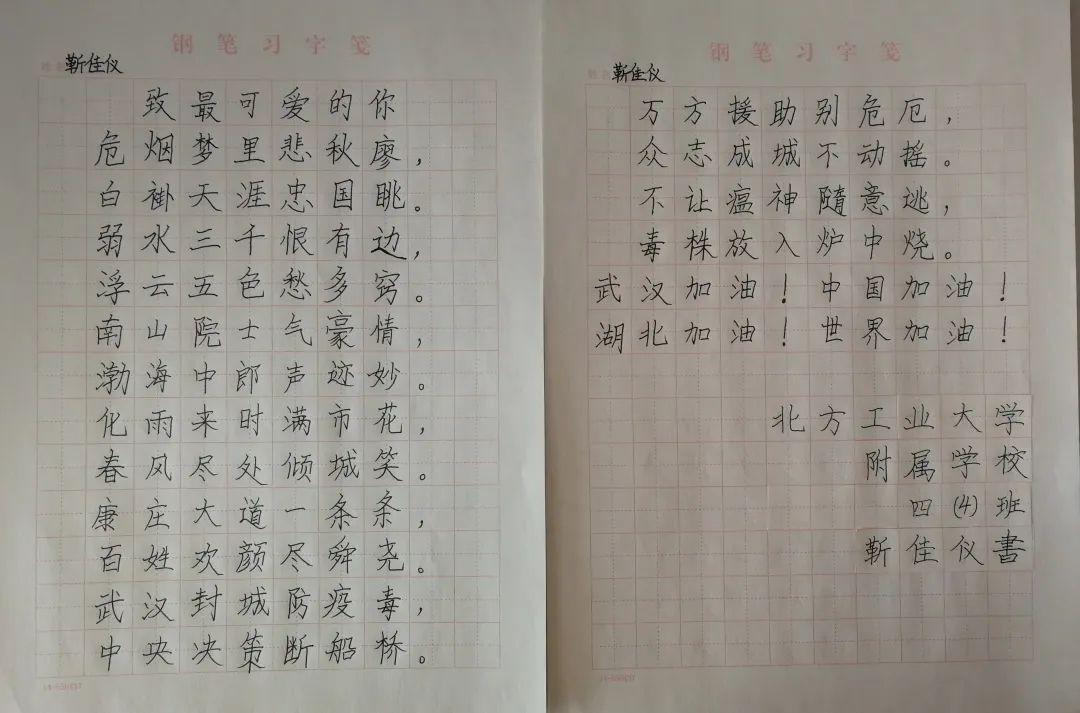 钢笔习字笺
姓名 靳佳仪
致最可爱的你
危烟梦里悲秋廖，
白褂天涯忠国眺。
弱水三千恨有边，
浮云五色愁多窍。
南山院士气豪情，
渤海中郎声迹妙。
化雨来时满市花，
春风尽处倾城笑。
康庄大道一条条，
百姓欢颜尽舜尧。
武汉封城防疫毒，
中央决策断船桥。
钢笔习字笺
姓名 靳佳仪
万方援助别危厄，
众志成城不动摇。
不让瘟神随意逃，
毒株放入炉中烧。
武汉加油！中国加油！
湖北加油！世界加油！
北方工业大学
附属学校
四(4)班
靳佳仪書